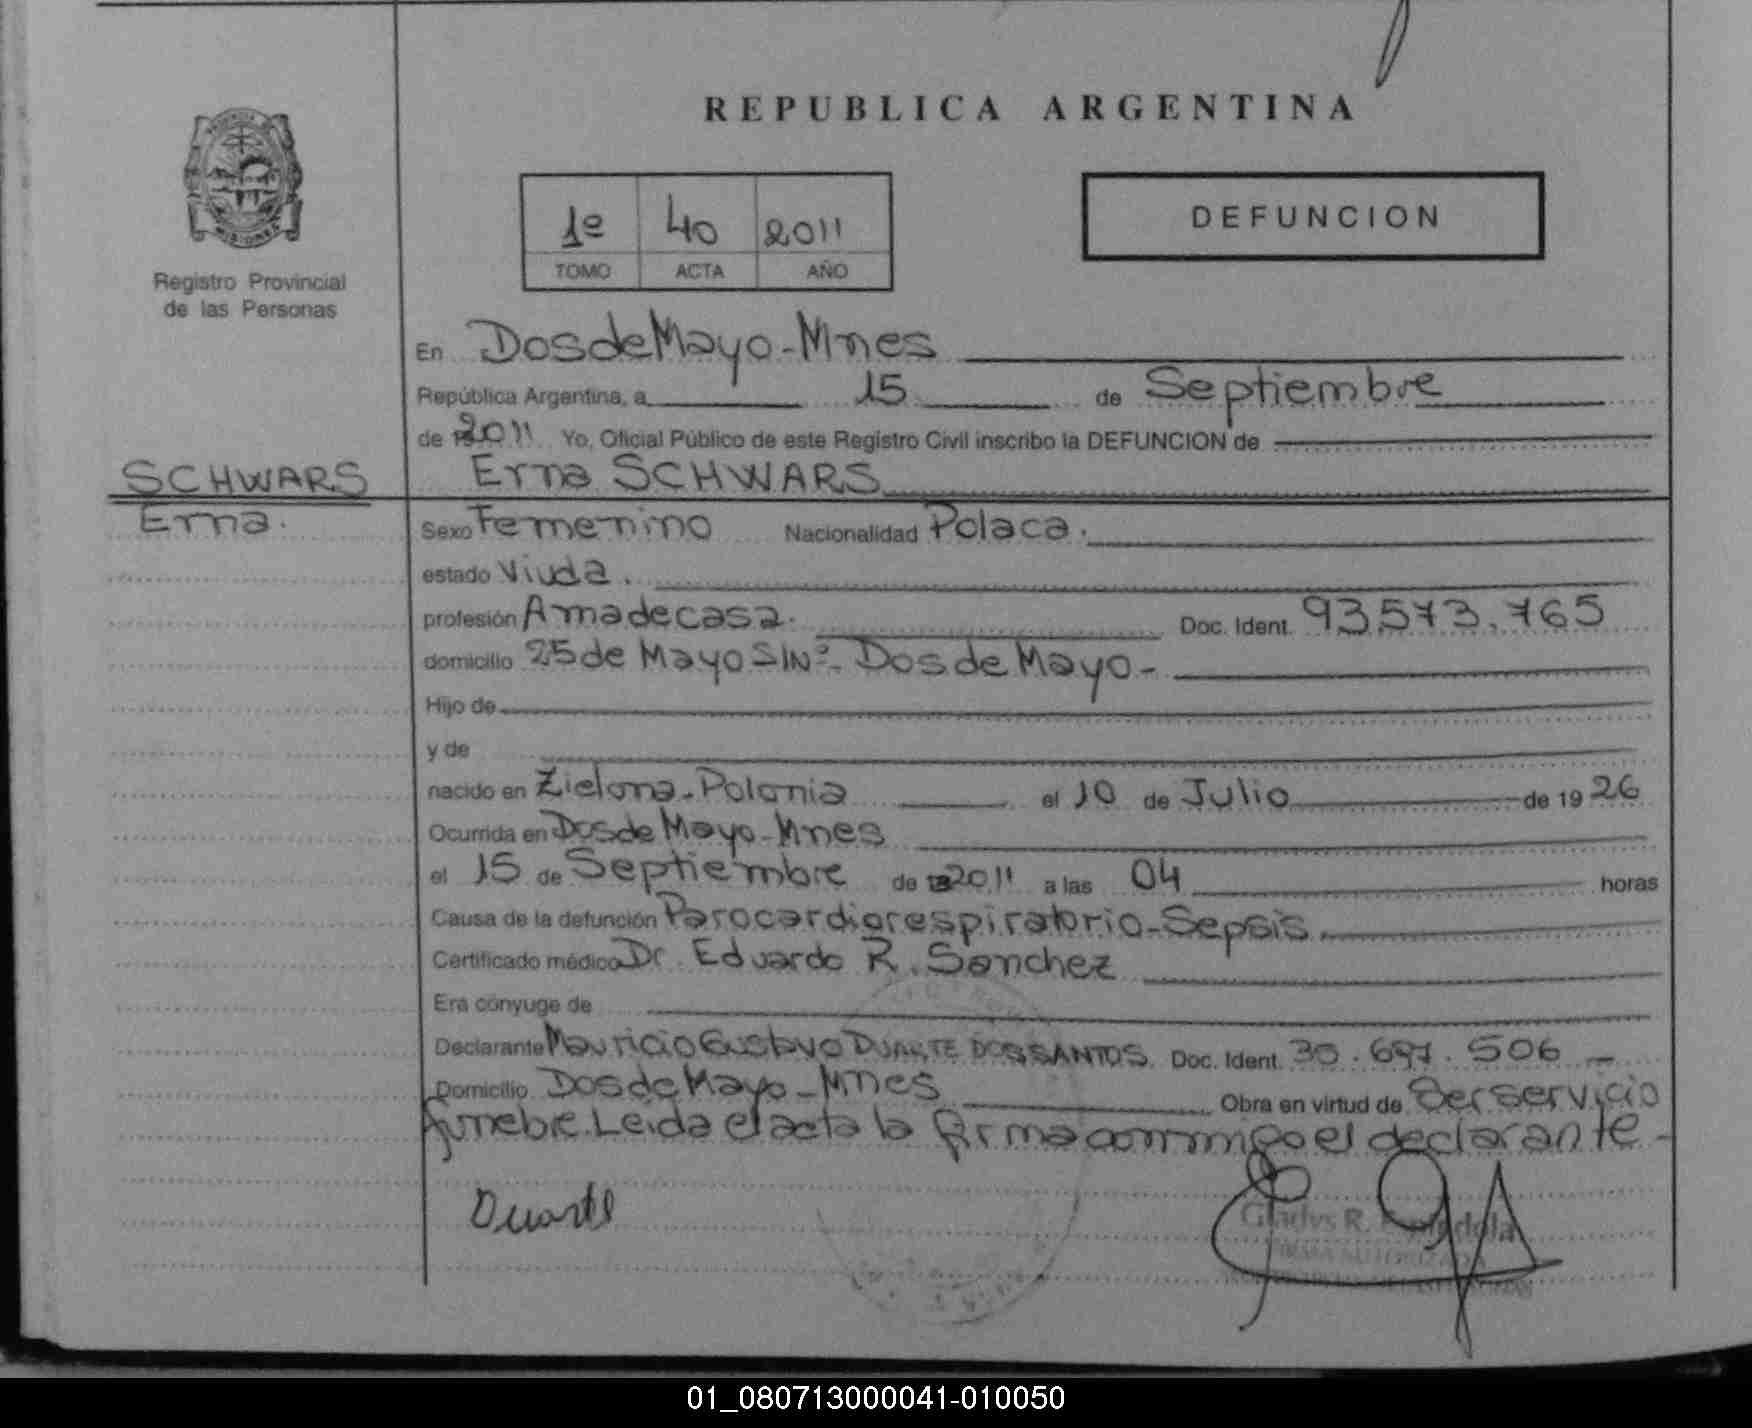 REPUBLICA ARGENTINA
1º 40 2011
TOMO ACTA AÑO
DEFUNCION
MISIONES
Registro Provincial
de las Personas
En Dos de Mayo-Mnes
República Argentina, a 15 de Septiembre
de 2011 Yo, Oficial Público de este Registro Civil inscribo la DEFUNCION de
SCHWARS Erna SCHWARS
Erna. Sexo Femenino Nacionalidad Polaca.
estado Viuda.
profesión Ama de casa. Doc. Ident. 93.573.765
domicilio 25 de Mayo S/Nº- Dos de Mayo-
Hijo de
y de
nacido en Zielona-Polonia el 10 de Julio de 1926
Ocurrida en Dos de Mayo-Mnes
el 15 de Septiembre de 2011 a las 04 horas
Causa de la defunción Parocardiorespiratorio-Sepsis.
Certificado médico Dr. Eduardo R. Sanchez
Era cónyuge de
Declarante Mauricio Gustavo DUARTE DOS SANTOS Doc. Ident. 30.697.506 -
Domicilio Dos de Mayo-Mnes Obra en virtud de Ser servicio
funebre. Leida el acta la firma conmigo el declarante-
Duarte
Gladys R.
01_080713000041-010050